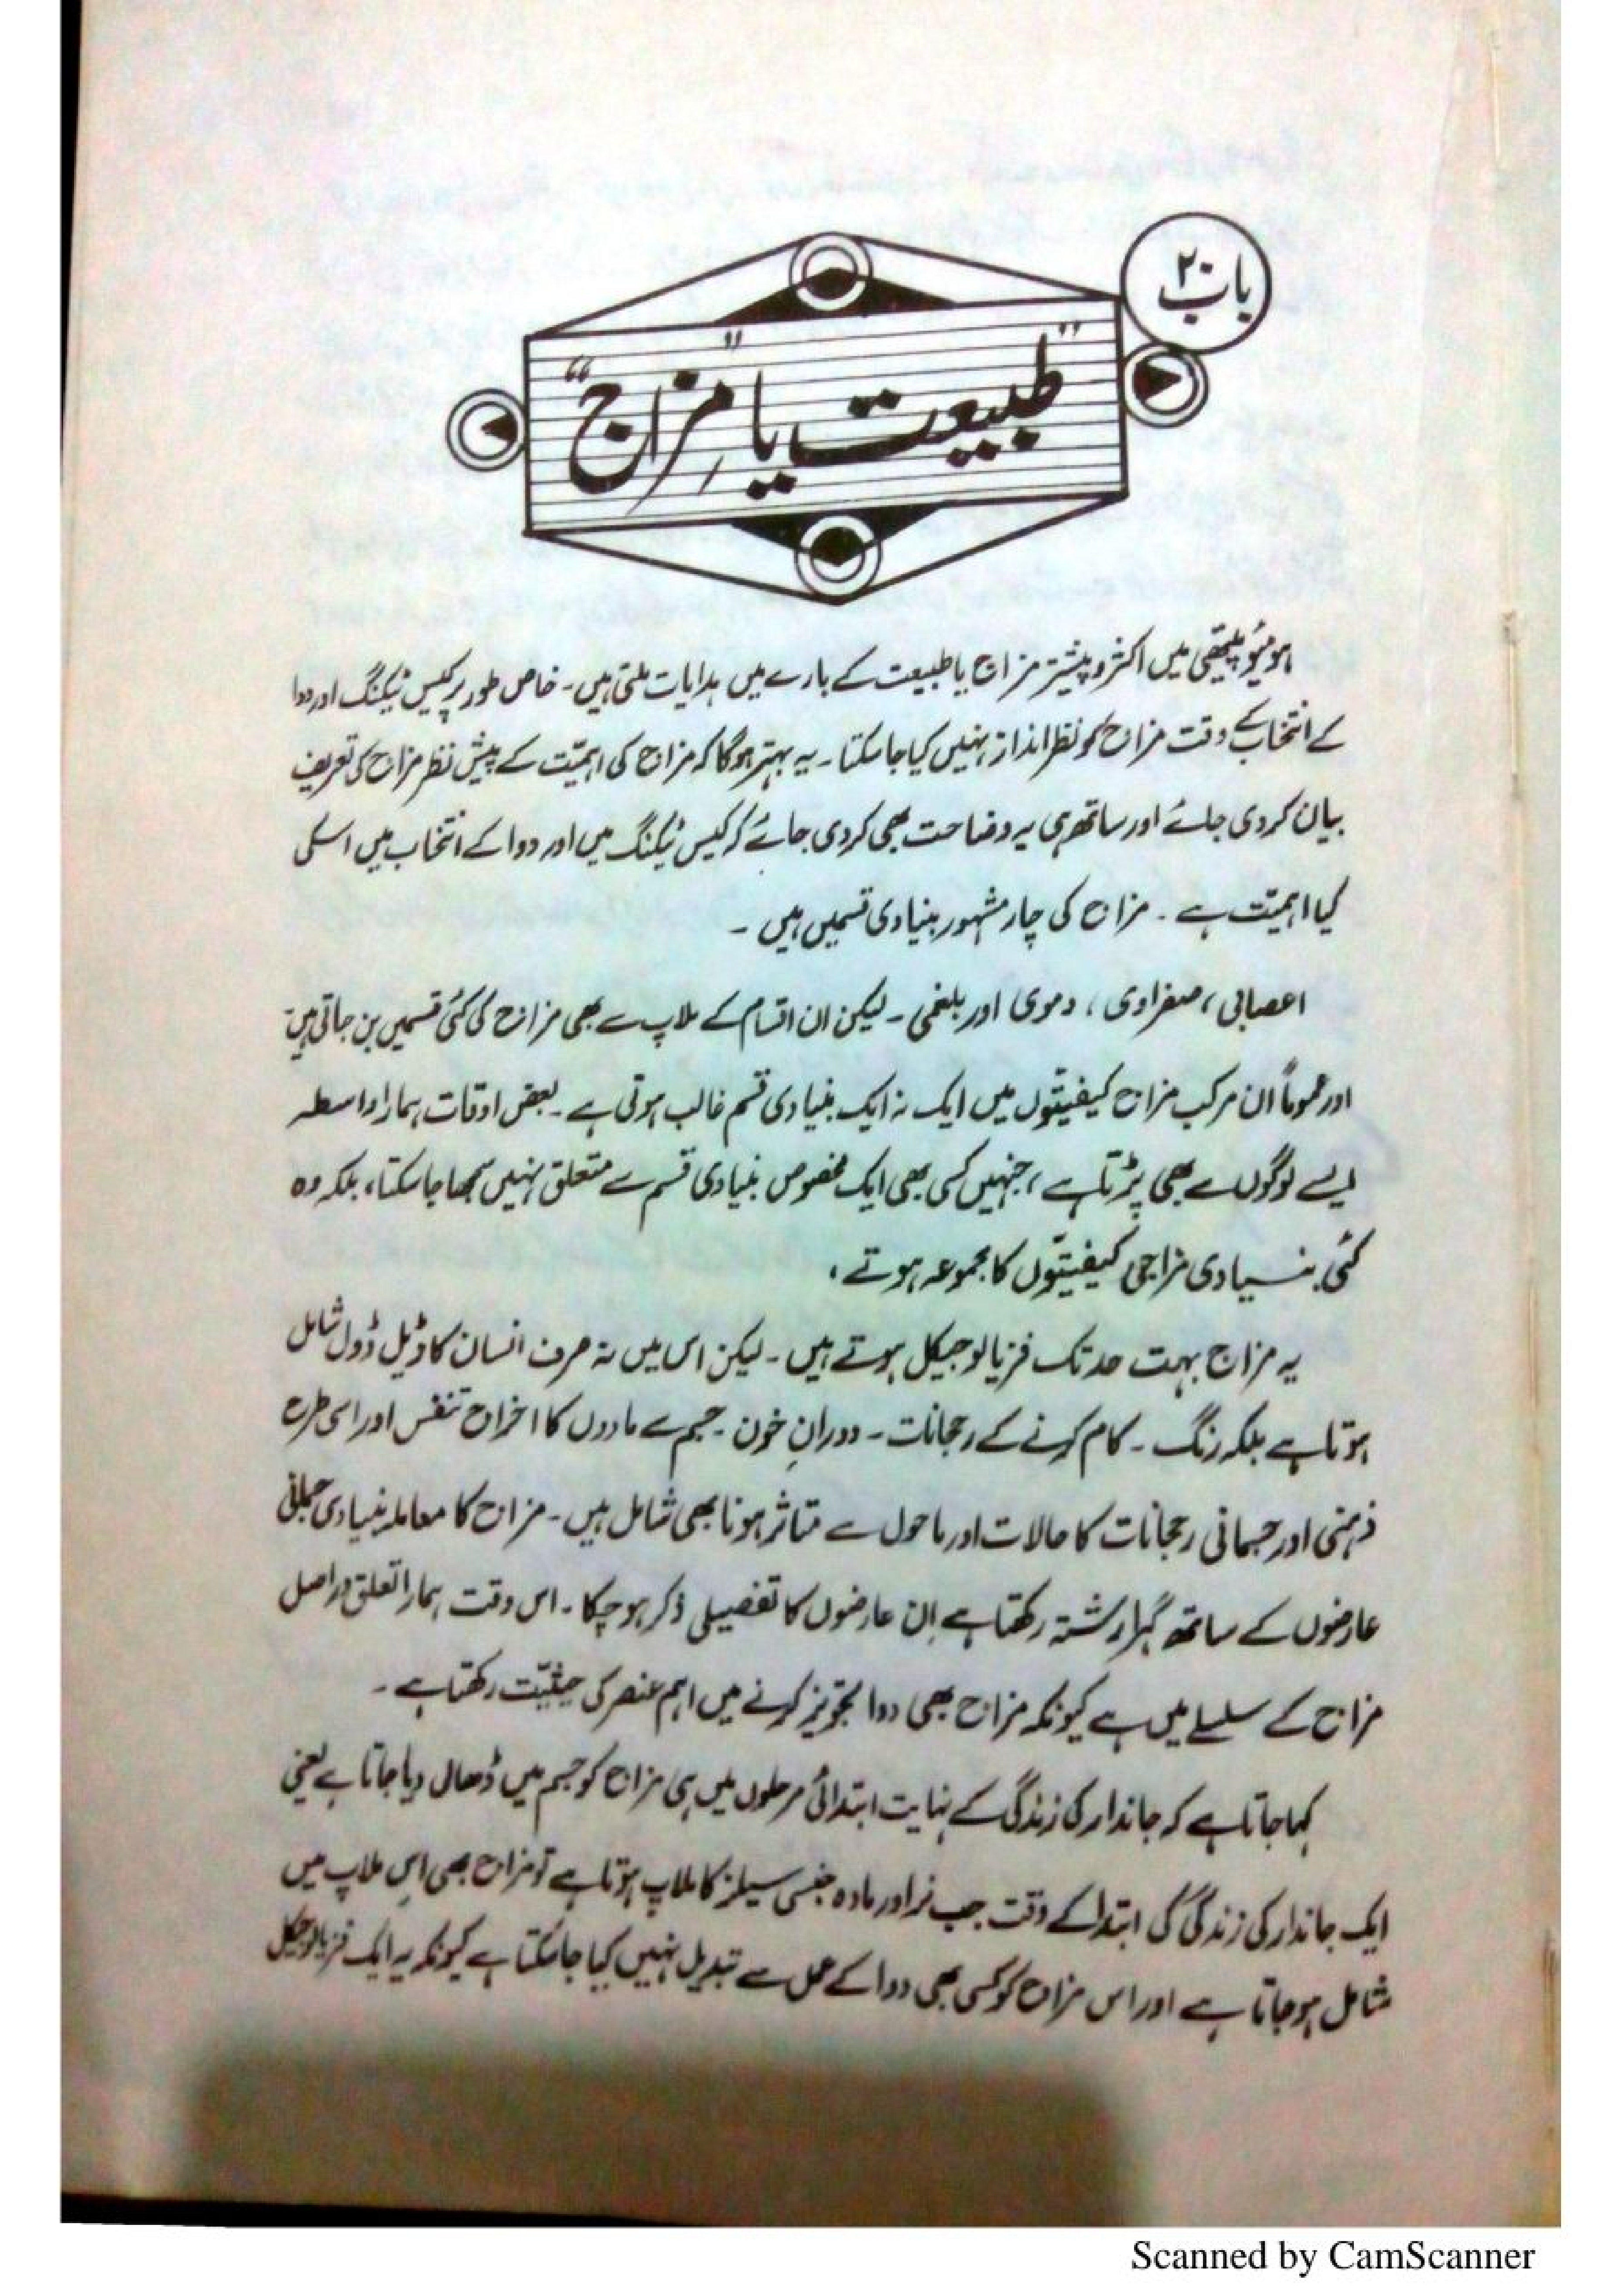 باب ۲۰
"طبیعت یا "مزاج"
ہومیوپیتھی میں اکثر و بیشتر مزاج یا طبیعت کے بارے میں ہدایات ملتی ہیں۔ خاص طور پر کیس ٹیکنگ اور دوا
کے انتخاب کے وقت مزاج کو نظر انداز نہیں کیا جا سکتا۔ یہ بہتر ہوگا کہ مزاج کی اہمیّت کے پیش نظر مزاج کی تعریف
بیان کر دی جائے اور ساتھ ہی یہ وضاحت بھی کر دی جائے کہ کیس ٹیکنگ میں اور دوا کے انتخاب میں اسکی
کیا اہمیّت ہے۔ مزاج کی چار مشہور بنیادی قسمیں ہیں۔
اعصابی، صفراوی، دموی اور بلغمی۔ لیکن ان اقسام کے ملاپ سے بھی مزاج کی کئی قسمیں بن جاتی ہیں
اور عموماً ان مرکب مزاج کیفیتّوں میں ایک نہ ایک بنیادی قسم غالب ہوتی ہے۔ بعض اوقات ہمارا واسطہ
ایسے لوگوں سے بھی پڑتا ہے، جنہیں کسی بھی ایک مخصوص بنیادی قسم سے متعلق نہیں سمجھا جا سکتا، بلکہ وہ
کئی بنیادی مزاجی کیفیتّوں کا مجموعہ ہوتے،
یہ مزاج بہت حد تک فزیالوجیکل ہوتے ہیں۔ لیکن اس میں نہ صرف انسان کا ڈیل ڈول شامل
ہوتا ہے بلکہ رنگ۔ کام کرنے کے رجحانات۔ دورانِ خون۔ جسم سے مادوں کا اخراج تنفس اور اسی طرح
ذہنی اور جسمانی رجحانات کا حالات اور ماحول سے متاثر ہونا بھی شامل ہیں۔ مزاج کا معاملہ بنیادی جبلّی
عارضوں کے ساتھ گہرا رشتہ رکھتا ہے اِن عارضوں کا تفصیلی ذکر ہو چکا۔ اس وقت ہمارا تعلق دراصل
مزاج کے سلسلے میں ہے کیونکہ مزاج بھی دوا تجویز کرنے میں اہم عنصر کی حیثیّت رکھتا ہے۔
کہا جاتا ہے کہ جاندار کی زندگی کے نہایت ابتدائی مرحلوں میں ہی مزاج کو جسم میں ڈھال دیا جاتا ہے یعنی
ایک جاندار کی زندگی کی ابتدا کے وقت جب نر اور مادہ جنسی سیلز کا ملاپ ہوتا ہے تو مزاج بھی اس ملاپ میں
شامل ہو جاتا ہے اور اس مزاج کو کسی بھی دوا کے عمل سے تبدیل نہیں کیا جا سکتا ہے کیونکہ یہ ایک فزیالوجیکل
Scanned by CamScanner